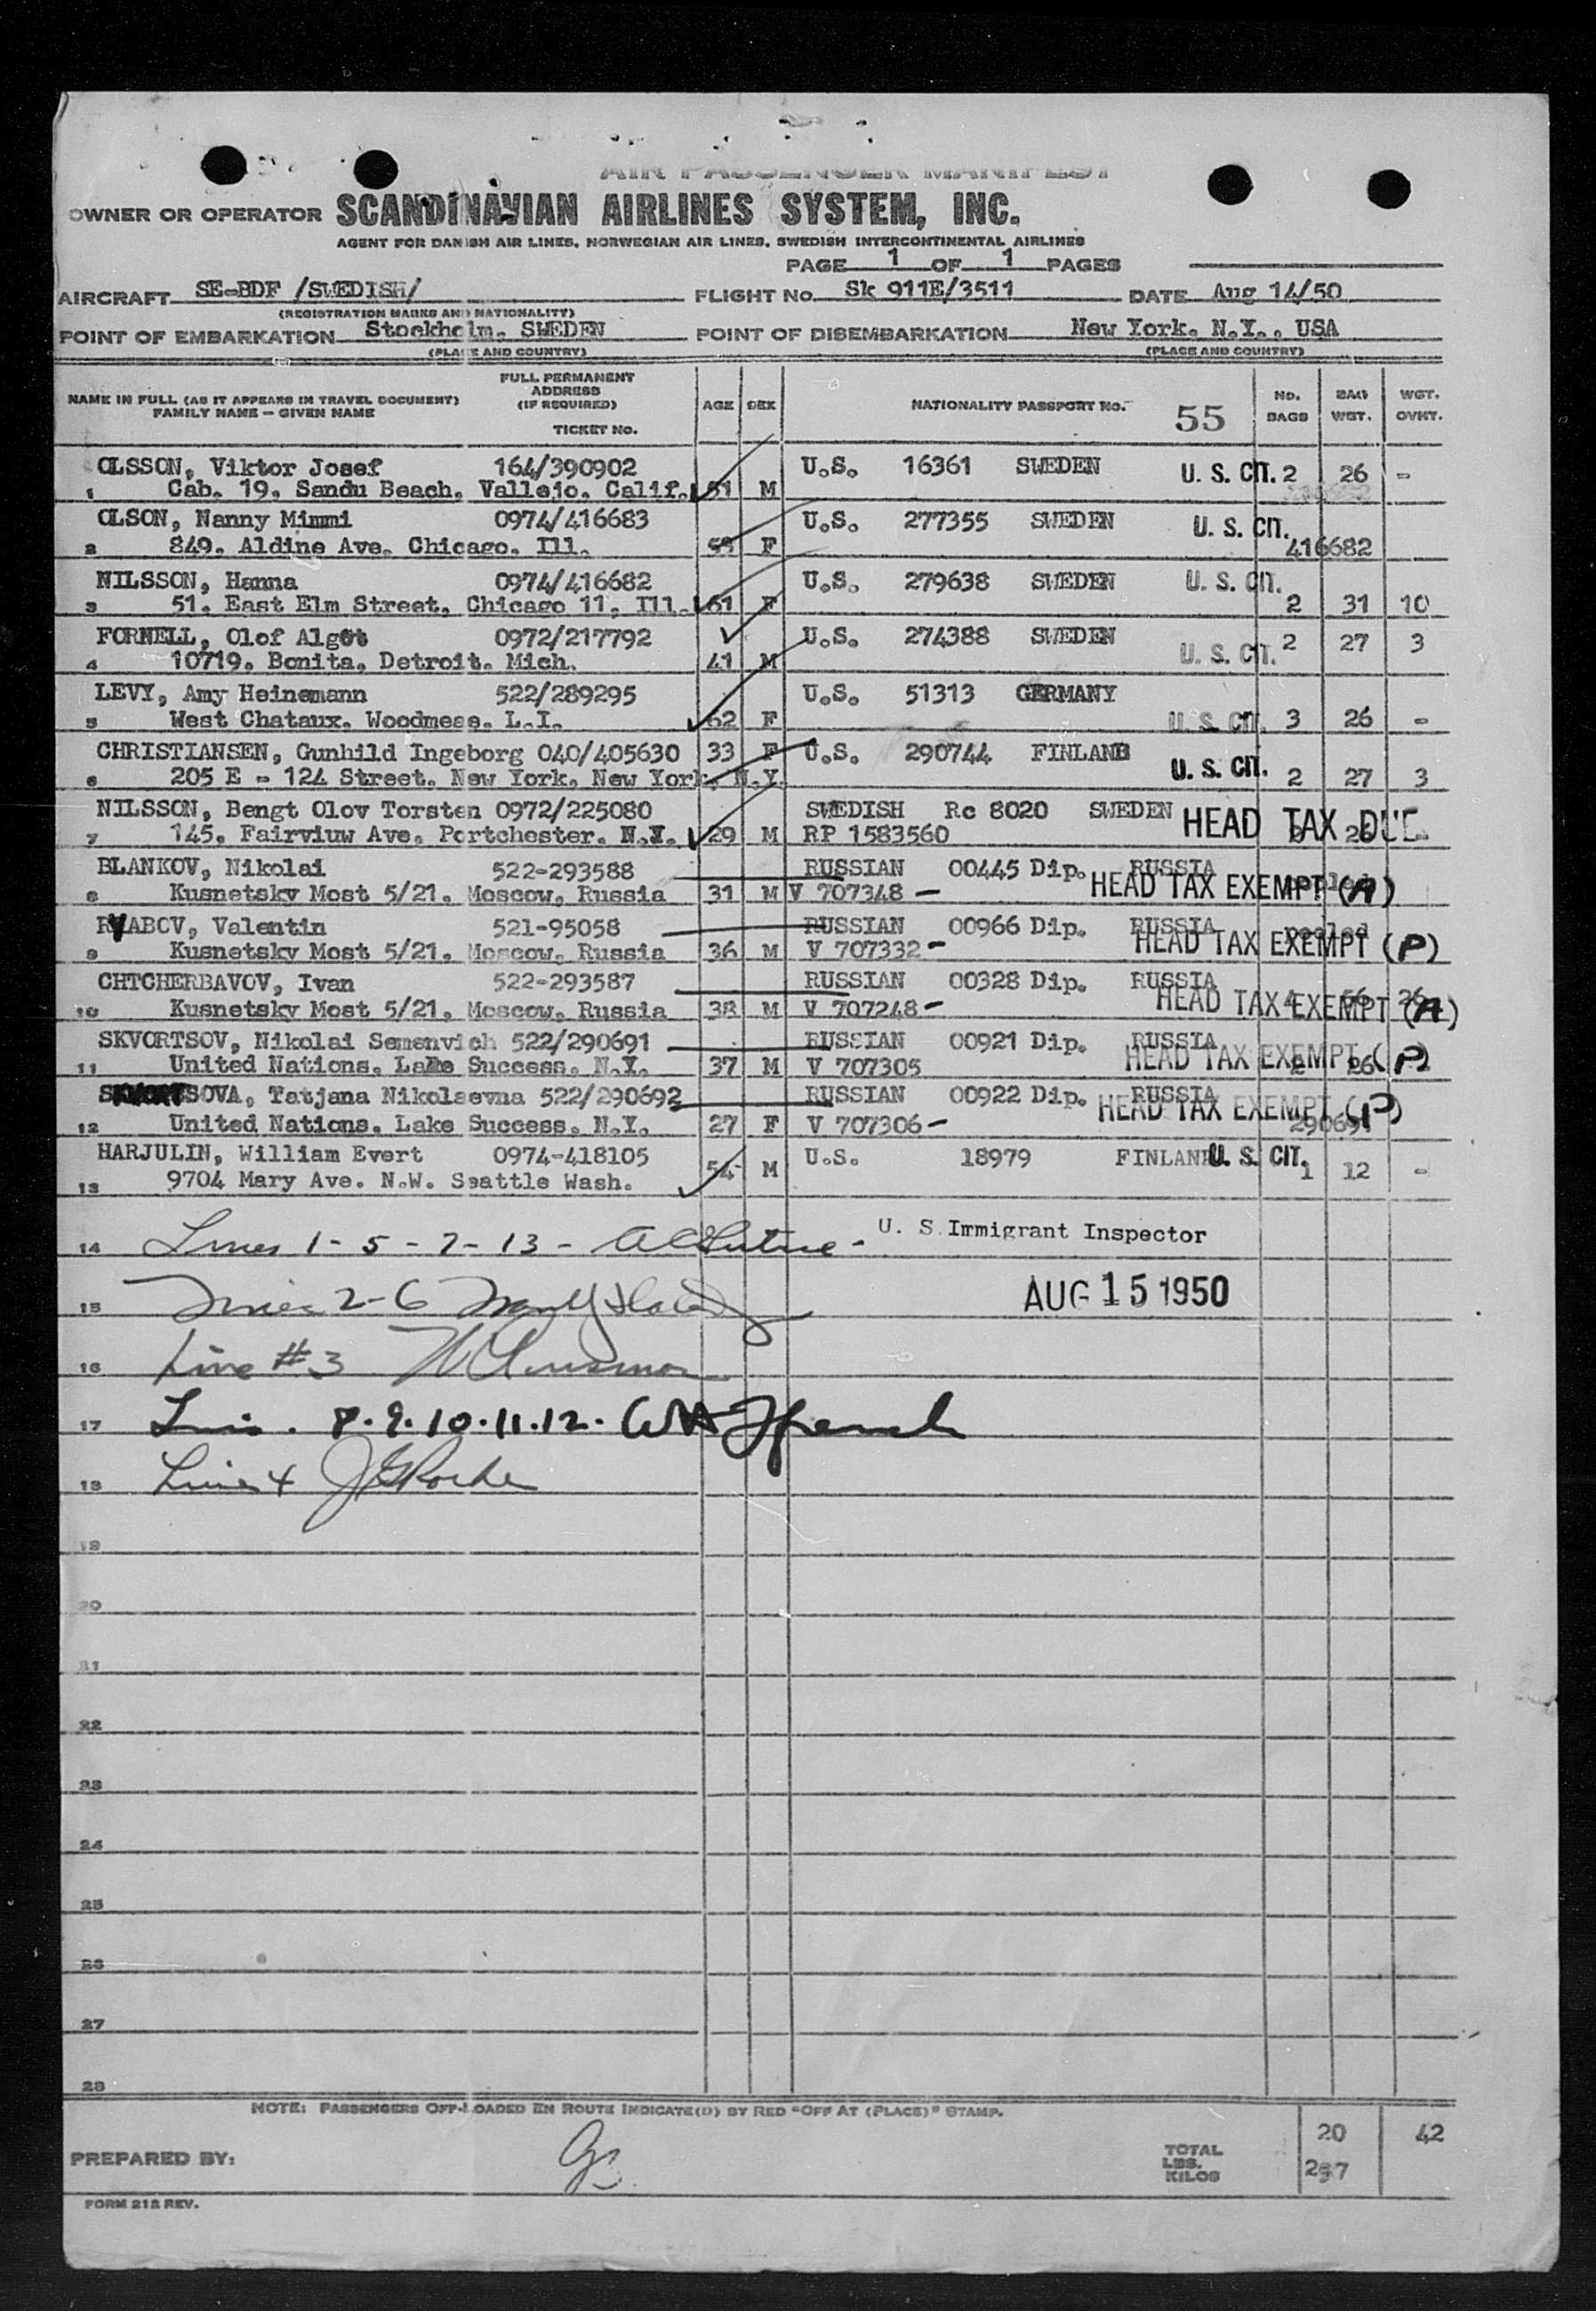 AIR PASSENGER MANIFEST
OWNER OR OPERATOR SCANDINAVIAN AIRLINES SYSTEM, INC.
AGENT FOR DANISH AIR LINES, NORWEGIAN AIR LINES, SWEDISH INTERCONTINENTAL AIRLINES
PAGE 1 OF 1 PAGES
AIRCRAFT SE-BDF /SWEDISH/ FLIGHT No. Sk 911E/3511 DATE Aug 14/50
(REGISTRATION MARKS AND NATIONALITY)
POINT OF EMBARKATION Stockholm, SWEDEN POINT OF DISEMBARKATION New York, N.Y., USA
(PLACE AND COUNTRY) (PLACE AND COUNTRY)
NAME IN FULL (AS IT APPEARS IN TRAVEL DOCUMENT) FAMILY NAME — GIVEN NAME FULL PERMANENT ADDRESS (IF REQUIRED) TICKET No. AGE SEX NATIONALITY PASSPORT No. 55 NO. BAGS BAG WGT. WGT. OVWT.
OLSSON, Viktor Josef 164/390902 U.S. 16361 SWEDEN U. S. CIT. 2 26 -
1 Cab. 19, Sandu Beach, Vallejo, Calif. 61 M
OLSON, Nanny Mimmi 0974/416683 U.S. 277355 SWEDEN U. S. CIT.
2 849, Aldine Ave. Chicago, Ill. F 416682
NILSSON, Hanna 0974/416682 U.S. 279638 SWEDEN U. S. CIT.
3 51, East Elm Street, Chicago 11, Ill. 61 F 2 31 10
FORNELL, Olof Algot 0972/217792 U.S. 274388 SWEDEN U. S. CIT. 2 27 3
4 10719, Bonita, Detroit, Mich. 41 M
LEVY, Amy Heinemann 522/289295 U.S. 51313 GERMANY
5 West Chataux, Woodmese, L.I. 62 F U. S. CIT. 3 26 -
CHRISTIANSEN, Gunhild Ingeborg 040/405630 33 F U.S. 290744 FINLAND
6 205 E - 124 Street, New York, New York, N.Y. U. S. CIT. 2 27 3
NILSSON, Bengt Olov Torsten 0972/225080 SWEDISH Rc 8020 SWEDEN HEAD TAX DUE
7 145, Fairviuw Ave. Portchester, N.Y. 29 M RP 1583560
BLANKOV, Nikolai 522-293588 RUSSIAN 00445 Dip. RUSSIA
8 Kusnetsky Most 5/21, Moscow, Russia 31 M V 707348 - HEAD TAX EXEMPT (A) pooled
RYABOV, Valentin 521-95058 RUSSIAN 00966 Dip. RUSSIA pooled
9 Kusnetsky Most 5/21, Moscow, Russia 36 M V 707332 - HEAD TAX EXEMPT (P)
CHTCHERBAVOV, Ivan 522-293587 RUSSIAN 00328 Dip. RUSSIA
10 Kusnetsky Most 5/21, Moscow, Russia 38 M V 707248 - HEAD TAX EXEMPT (A) 4 56 26
SKVORTSOV, Nikolai Semenvich 522/290691 RUSSIAN 00921 Dip. RUSSIA
11 United Nations, Lake Success, N.Y. 37 M V 707305 HEAD TAX EXEMPT (P) 2 26
SKVORTSOVA, Tatjana Nikolaevna 522/290692 RUSSIAN 00922 Dip. RUSSIA
12 United Nations, Lake Success, N.Y. 27 F V 707306 - HEAD TAX EXEMPT (P) 290691
HARJULIN, William Evert 0974-418105 54 M U.S. 18979 FINLAND U. S. CIT. 1 12 -
13 9704 Mary Ave. N.W. Seattle Wash.
14 Lines 1 - 5 - 7 - 13 - U. S. Immigrant Inspector
15 Lines 2-6 AUG 15 1950
16 Line #3
17 Lines. 8. 9. 10. 11. 12.
18 Line 4 J G Roche
19
20
21
22
23
24
25
26
27
28
NOTE: PASSENGERS OFF-LOADED EN ROUTE INDICATE(D) BY RED "OFF AT (PLACE)" STAMP.
PREPARED BY: TOTAL LBS. KILOS 20 257 42
FORM 212 REV.